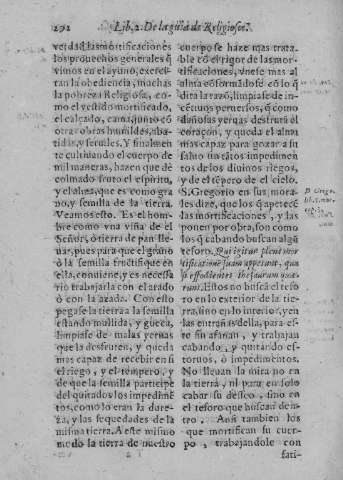 292 Lib. 2. De la guia de Religiosos.
verdad las mortificaciones
los prouechos generales q̃
vimos en el ayuno, exerci-
tan la obediencia, muchas
la pobreza Religiosa, co-
mo el vestido mortificado,
el calçado, cama, junto cõ
otras obras humildes, aba-
tidas, y seruiles. Y finalmen-
te cultiuando el cuerpo de
mil maneras, hazen que dè
colmado fruto el espiritu,
y el alma, que es como gra-
no, y semilla de la tierra.
Veamos esto. Es el hom-
bre como vna viña de el
Señor, ò tierra de pan lle-
uar, pues para que el grano
ò la semilla fructifique en
ella, conuiene, y es necessa-
rio trabajarla con el arado
ò con la azada. Con esto
pegase la tierra a la semilla
estando mullida, y gueca,
limpiase de malas yeruas
que la desfruten, y queda
mas capaz de recebir en si
el riego, y el tempero, y
de que la semilla participe
del quitados los impedimẽ
tos, como lo eran la dure-
za, y las sequedades de la
misma tierra. A este mismo
modo la tierra de nuestro
cuerpo se haze mas trata-
ble cõ el rigor de las mor-
tificaciones, vnese mas al
alma cõformãdose cõ lo q̃
dita la razõ, limpiase de in-
cẽtiuos peruersos, q̃ como
dañosas yeruas destruiã el
coraçon, y queda el alma
mas capaz para gozar a su
saluo sin tãtos impedimen
tos de los diuinos riegos,
y de el tẽpero de el cielo.
S. Gregorio en sus mora-
les dize, que los q̃ apetecẽ
las mortificaciones, y las
ponen por obra, son como
los q̃ cabando buscan algũ
tesoro. Qui igitur plene mor
tificationẽ suam appetunt, qua
si effodientes thesaurum quæ
runt. Estos no buscã el teso
ro en lo exterior de la tie-
rra, sino en lo interior, y en
las entrañas della, para es-
to sin afinan, y trabajan
cabando, y quitando es-
toruos, ò impedimentos.
No lleuan la mira no en
la tierra, ni paran en solo
cabar su desseo, sino en
el tesoro que buscan den-
tro. Assi tambien los
que mortifican su cuer-
po, trabajandole con
fati-
D. Grego.
lib. 5. mor.